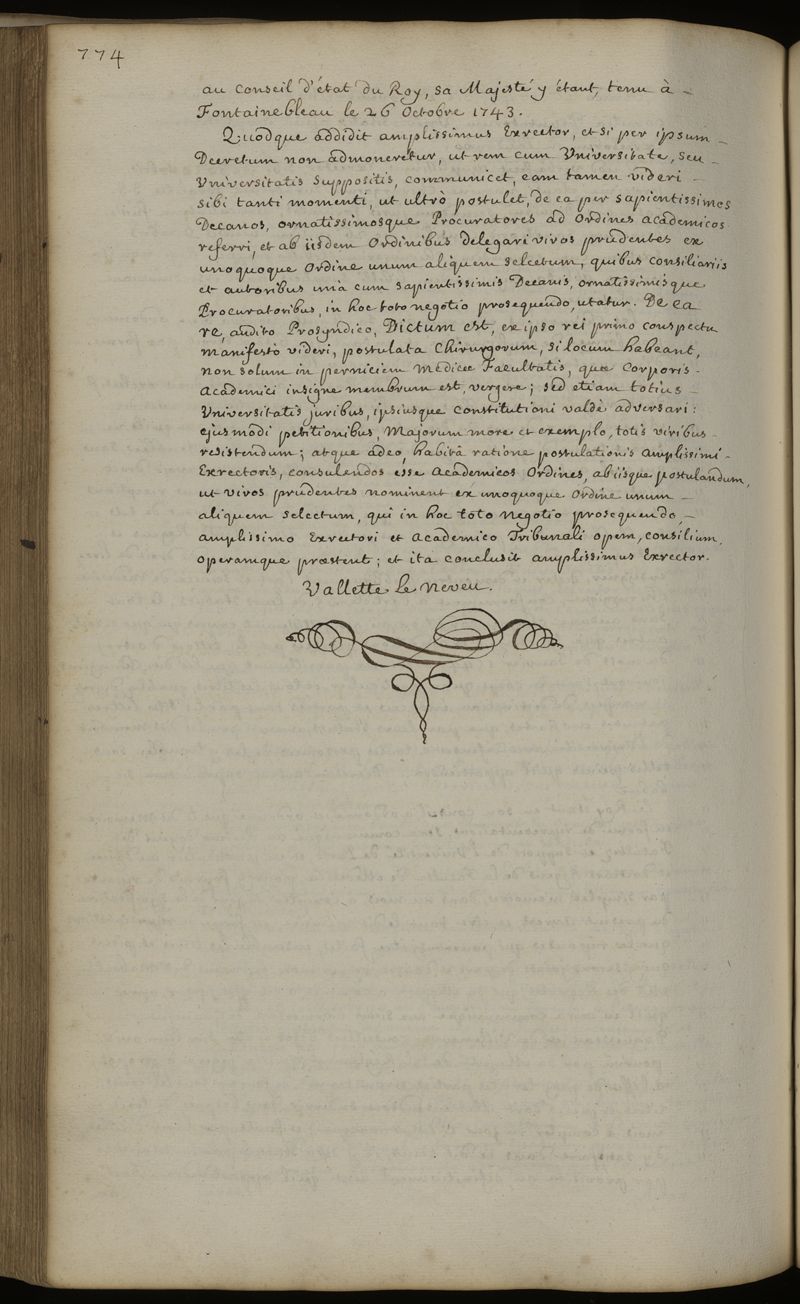 774
au Conseil d'état du Roy, sa Majesté y étant, tenu à -
Fontainebleau le 26 Octobre 1743.
Quodque addidit amplissimus Exrector, et si per ipsum -
Decretum non admoneretur, ut rem cum Universitate, seu -
Universitatis Suppositis, communicet, eam tamen videri -
sibi tanti momenti, ut ultrò postulet, de ea per sapientissimos
Decanos, ornatissimosque Procuratores ad Ordines academicos
referri, et ab iisdem Ordinibus delegari viros prudentes ex
unoquoque Ordine unum aliquem selectum, quibus consiliariis
et autoribus unà cum sapientissimis Decanis, ornatissimisque
Procuratoribus, in hoc toto negotio prosequendo, utatur. De ea
re, audito Prosyndico, Dictum est, ex ipso rei primo conspectu
manifestò videri, postulata Chirurgorum, si locum habeant,
non solum in perniciem Medicæ Facultatis, quæ Corporis -
academici insigne membrum est, vergere; sed etiam totius -
Universitatis juribus, ipsiusque Constitutioni valdè adversari:
ejusmodi petitionibus, Majorum more et exemplo, totis viribus -
resistendum; atque adeo, habitâ ratione postulationis amplissimi -
Exrectoris, consulendos esse academicos Ordines, ab iisque postulandum,
ut viros prudentes nominent ex unoquoque Ordine unum -
aliquem selectum, qui in hoc toto negotio prosequendo, -
amplissimo Exrectori et academico Tribunali opem, consilium,
operamque præstent; et ita conclusit amplissimus Exrector.
Vallette le Neveu.